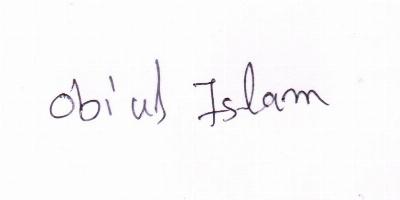 Obiul Islam